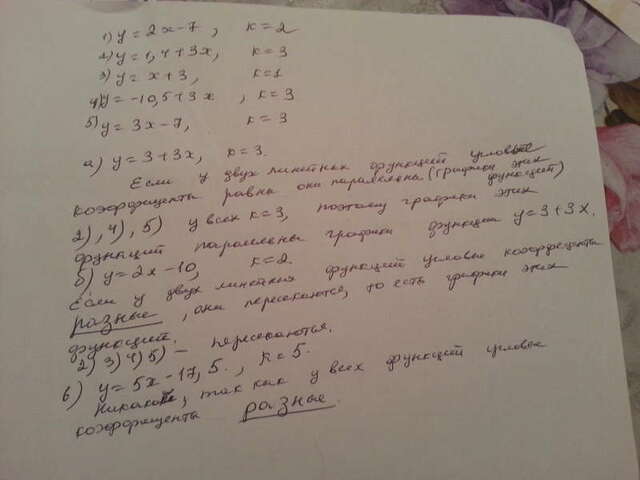 1) y = 2x - 7, k = 2
2) y = 1,4 + 3x, k = 3
3) y = x + 3, k = 1
4) y = -10,5 + 3x, k = 3
5) y = 3x - 7, k = 3
а) y = 3 + 3x, k = 3.
Если у двух линейных функций угловые
коэффициенты равны они параллельны (графики этих функций)
2), 4), 5) у всех k = 3, поэтому графики этих
функций параллельны графику функции y = 3 + 3x.
б) y = 2x - 10, k = 2.
Если у двух линейных функций угловые коэффициенты
разные, они пересекаются, то есть графики этих
функций.
2) 3) 4) 5) - пересекаются.
6) y = 5x - 17,5., k = 5.
Никакие, так как у всех функций угловые
коэффициенты разные.